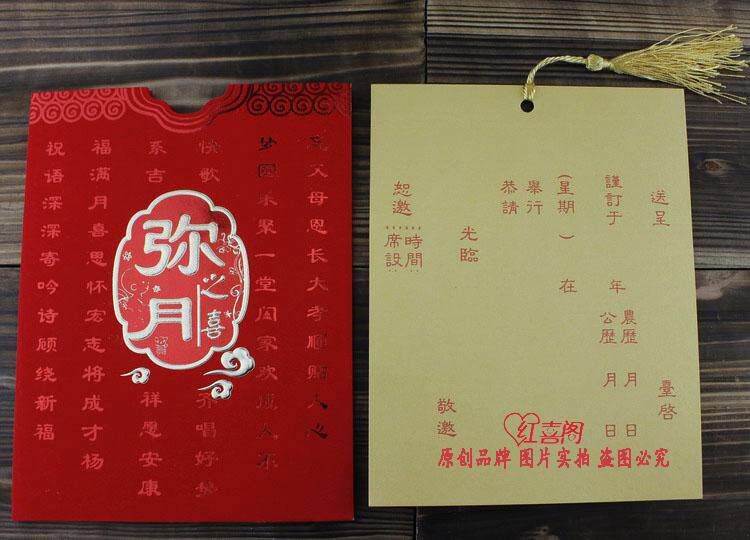 父母恩长大孝顺贴人心
聚一堂阖家欢成人乐
快歌
齐唱好梦
系吉
祥愿安康
福满月喜思怀宏志将成才杨
祝语深深寄吟诗顾绕新福
弥月
之喜
送呈
臺啓
謹訂于
年
農歷 月 日
公歷 月 日
(星期 )
在
舉行
恭請
光臨
敬邀
恕邀
時間
席設
红喜阁
原创品牌 图片实拍 盗图必究